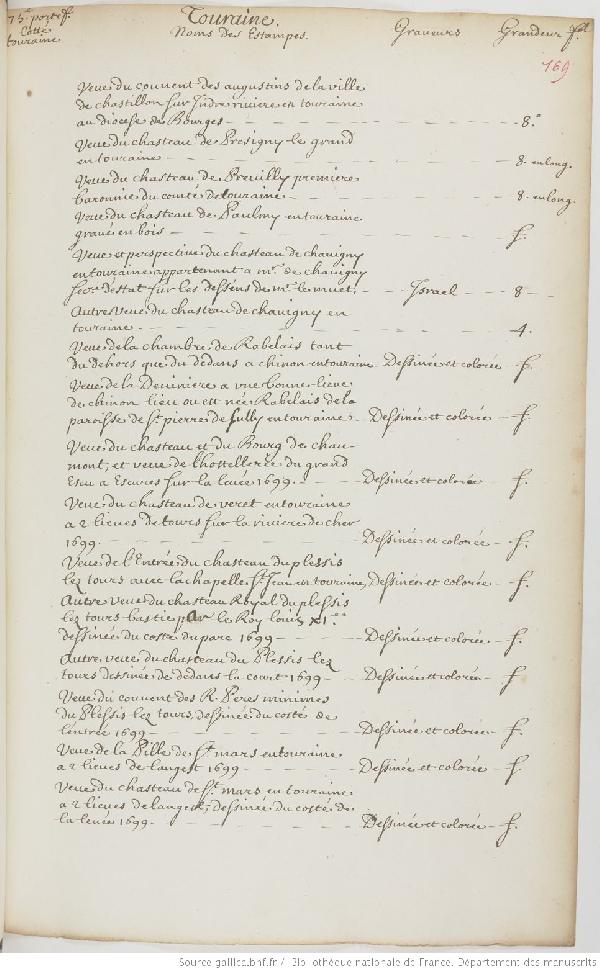 75.e portef.
Cotté
touraine
Touraine.
Noms Des Estampes. Graveurs Grandeur fol
169
Veue du couvent des augustins de la ville
de chastillon sur Jndre riviere en touraine
au diocese de Bourges 8.o
Veue du chasteau de Presigny le grand
en touraine 8. en long.
Veue du chasteau de Preuilly premiere
baronnie du comté de touraine 8. en long.
Veue du chasteau de Paulmy en touraine
gravé en bois f.
Veue et perspective du chasteau de chavigny
en touraine appartenant a mr. de chavigny
secre. destat sur les desseins de mr. le muet; Jsrael 8
Autre Veue du chasteau de chavigny en
touraine 4.
Veue de la chambre de Rabelais tant
du dehors que du dedans a chinon en touraine Dessinée et colorée f.
Veue de la Deviniere a une bonne lieue
de chinon lieu ou est née Rabelais de la
paroisse de St pierre de sully en touraine Dessinée et colorée f.
Veue du chasteau et du Bourg de chau-
mont, et veue de l'hostellerie du grand
Escu a Escures sur la levée 1699. Dessinée et colorée f.
Veue du chasteau de veret en touraine
a 2 lieues de tours sur la riviere de cher
1699. Dessinée et colorée f.
Veue de l'Entrée du chasteau du plessis
lez tours avec la chapelle St. Jean en touraine, Dessinée et colorée f.
Autre veue du chasteau Royal du plessis
lez tours basti par le Roy louis XI.
dessinée du costé du parc 1699 Dessinée et colorée f.
Autre veue du chasteau du Plessis lez
tours dessinée de dedans la court 1699 Dessinée et colorée f.
Veue du couvent des R. Peres minimes
du Plessis lez tours, dessinée du costé de
l'entrée 1699 Dessinée et colorée f.
Veue de la Pille de St mars en touraine
a 2 lieues de langest 1699 Dessinée et colorée f.
Veue du chasteau de St. mars en touraine
a 2 lieues de langest, dessinée du costé de
la levée 1699 Dessinée et colorée f.
Source gallica.bnf.fr / Bibliothèque nationale de France. Département des manuscrits